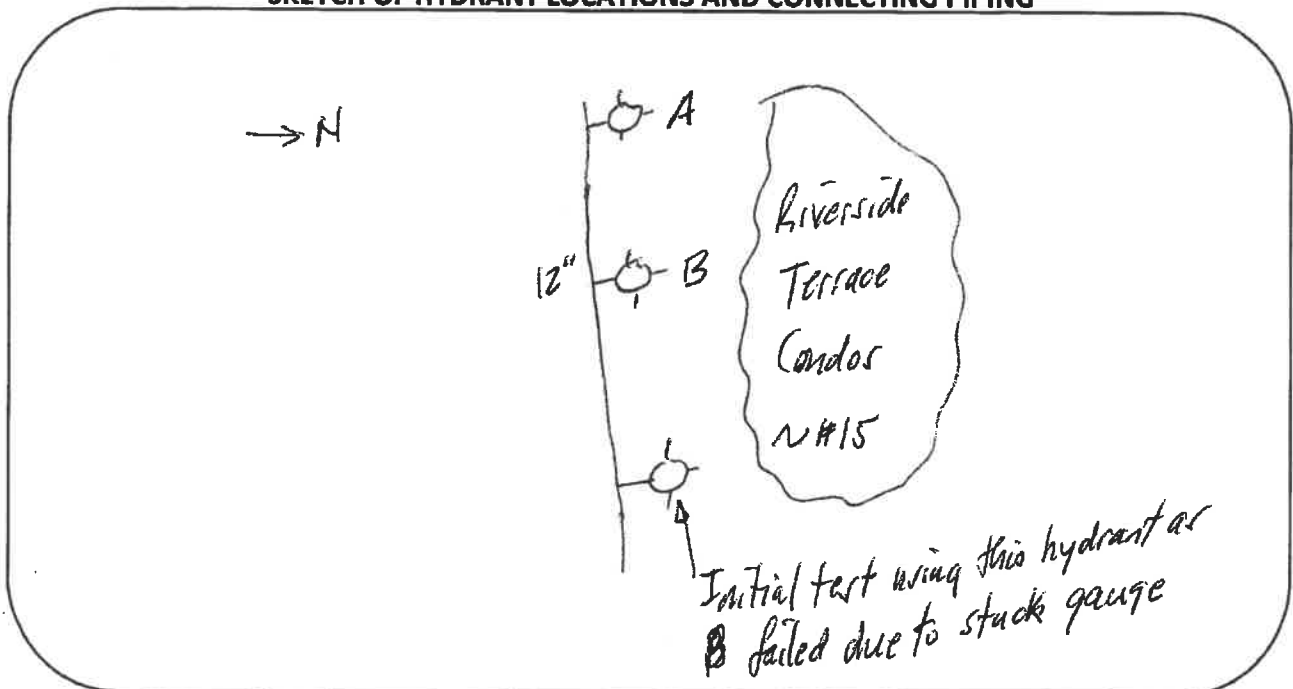 SKETCH OF HYDRANT LOCATIONS AND CONNECTING PIPING
→ N
A
B
12"
Riverside
Terrace
Condos
~#15
Initial test using this hydrant as
B failed due to stuck gauge